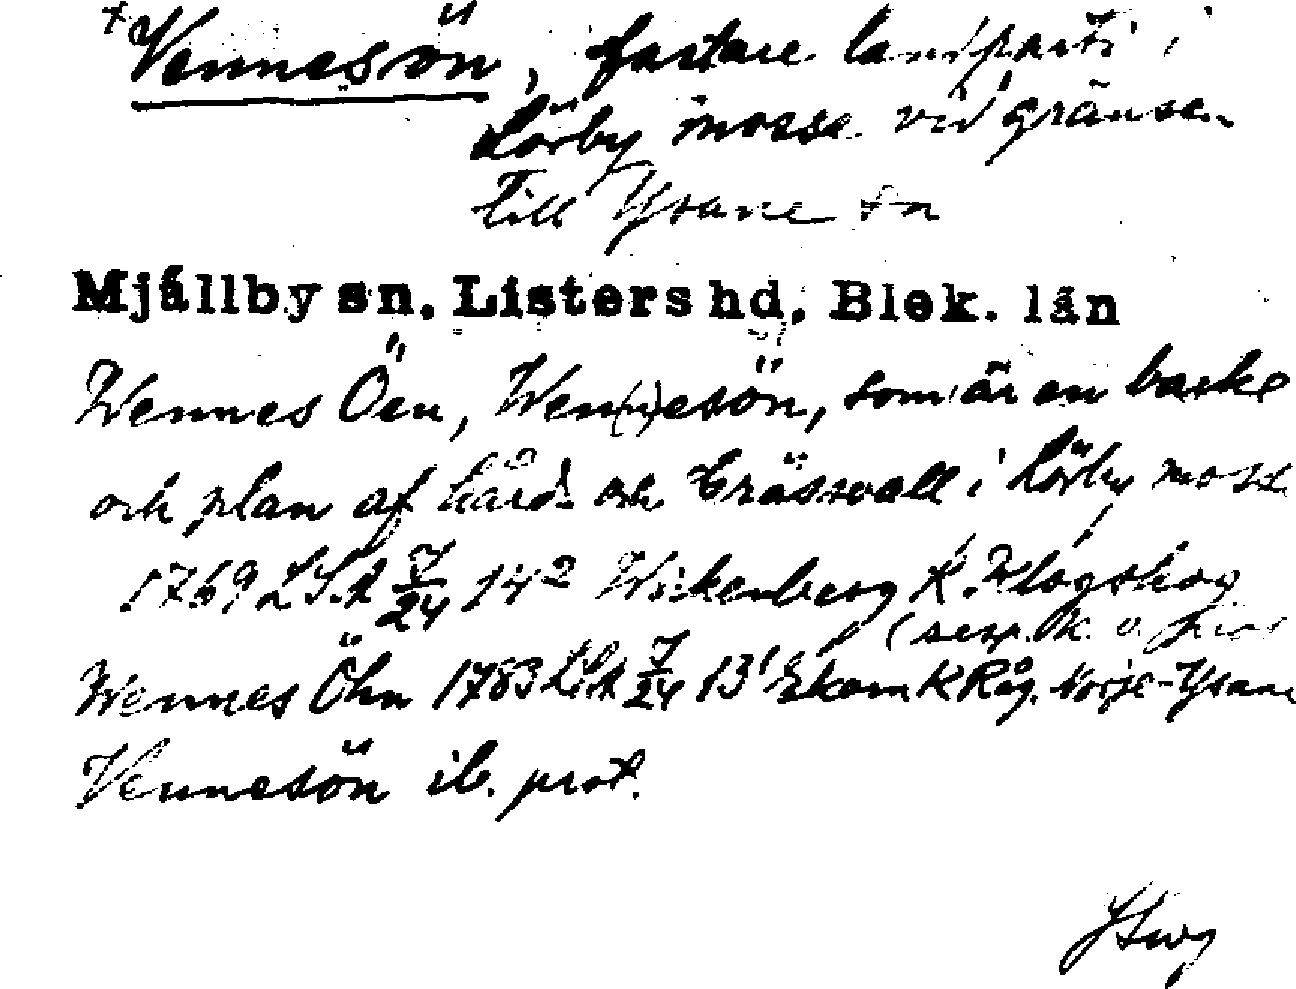 + Vennesön, fastare landparti i
Lörby mosse vid gränsen
till Ysane sn
Mjällby sn. Listers hd. Blek. län
Wennes Öen, Wen(n)esön, som är en backe
och plan af hård och Gräsvall i Lörby mosse
1769 LSA 7/24 14² Wirkenberg K. Klogskog
(resp. k. o. prot
Wennes Öhn 1783 LSA 7/24 13¹ Ekom K Råg. Norje-Ysane
Vennesön ib. prot.